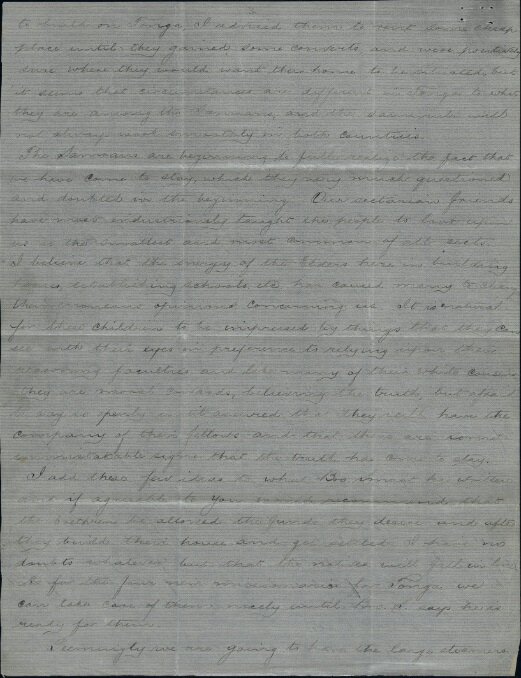 3
to build on Tonga, I advised them to rent some cheap
place until they gained some converts, and were positively
sure where they would want their home to be situated, but
it seems that circumstances are different in Tonga to what
they are among the Samoans, and the same rule will
not always work smoothly in both countries.
The Samoans are beginning to fully realize the fact that
we have come to stay, which they very much questioned
and doubted in the beginning. Our sectarian friends
have most industriously taught the people to look upon
us as the smallest and most common of all sects.
I believe that the energy of the Elders here in building
houses, establishing schools, etc. has caused many to change
their erroneous opinions concerning us. It is natural
for these children to be impressed by things that they can
see with their eyes in preference to relying upon their
reasoning faculties and like many of their white cousins
they are moral cowards, believing the truth, but afraid
to say so openly until assured that they will have the
company of their fellows and that there are some
unmistakable signs that the truth has come to stay.
I add these few ideas to what Bro has written
and if agreeable to you would recommend that
the brethren be allowed the funds they desire and after
they build their house and get settled I have no
doubts whatever but that the natives will fall in line.
As for the four new missionaries for Tonga we
can take care of them nicely until Bro. says he is
ready for them.
Seemingly we are going to have the large steamers